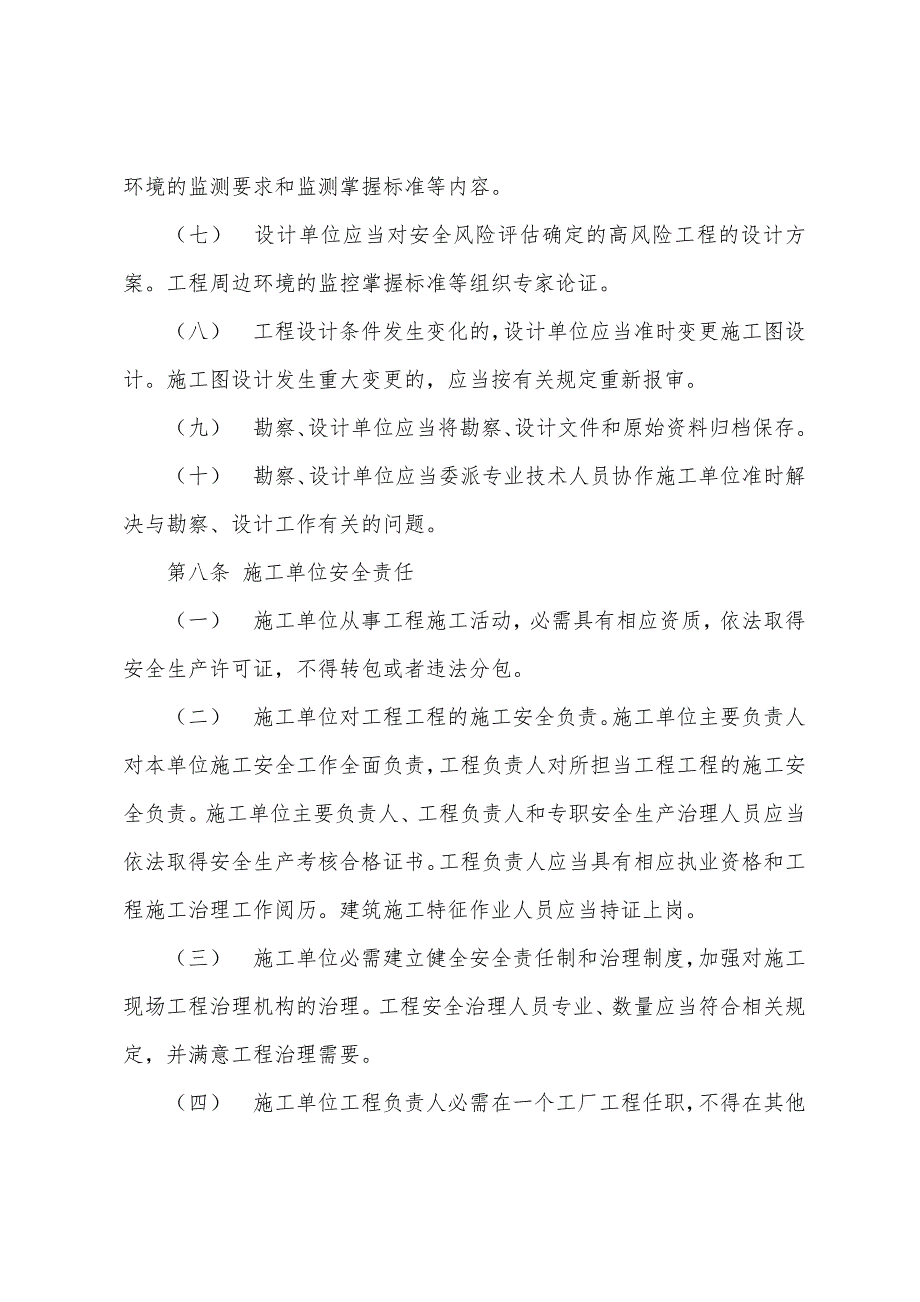 环境的监测要求和监测掌握标准等内容。
（七） 设计单位应当对安全风险评估确定的高风险工程的设计方
案。工程周边环境的监控掌握标准等组织专家论证。
（八） 工程设计条件发生变化的，设计单位应当准时变更施工图设
计。施工图设计发生重大变更的，应当按有关规定重新报审。
（九） 勘察、设计单位应当将勘察、设计文件和原始资料归档保存。
（十） 勘察、设计单位应当委派专业技术人员协作施工单位准时解
决与勘察、设计工作有关的问题。
第八条 施工单位安全责任
（一） 施工单位从事工程施工活动，必需具有相应资质，依法取得
安全生产许可证，不得转包或者违法分包。
（二） 施工单位对工程工程的施工安全负责。施工单位主要负责人
对本单位施工安全工作全面负责，工程负责人对所担当工程工程的施工安
全负责。施工单位主要负责人、工程负责人和专职安全生产治理人员应当
依法取得安全生产考核合格证书。工程负责人应当具有相应执业资格和工
程施工治理工作阅历。建筑施工特征作业人员应当持证上岗。
（三） 施工单位必需建立健全安全责任制和治理制度，加强对施工
现场工程治理机构的治理。工程安全治理人员专业、数量应当符合相关规
定，并满意工程治理需要。
（四） 施工单位工程负责人必需在一个工厂工程任职，不得在其他